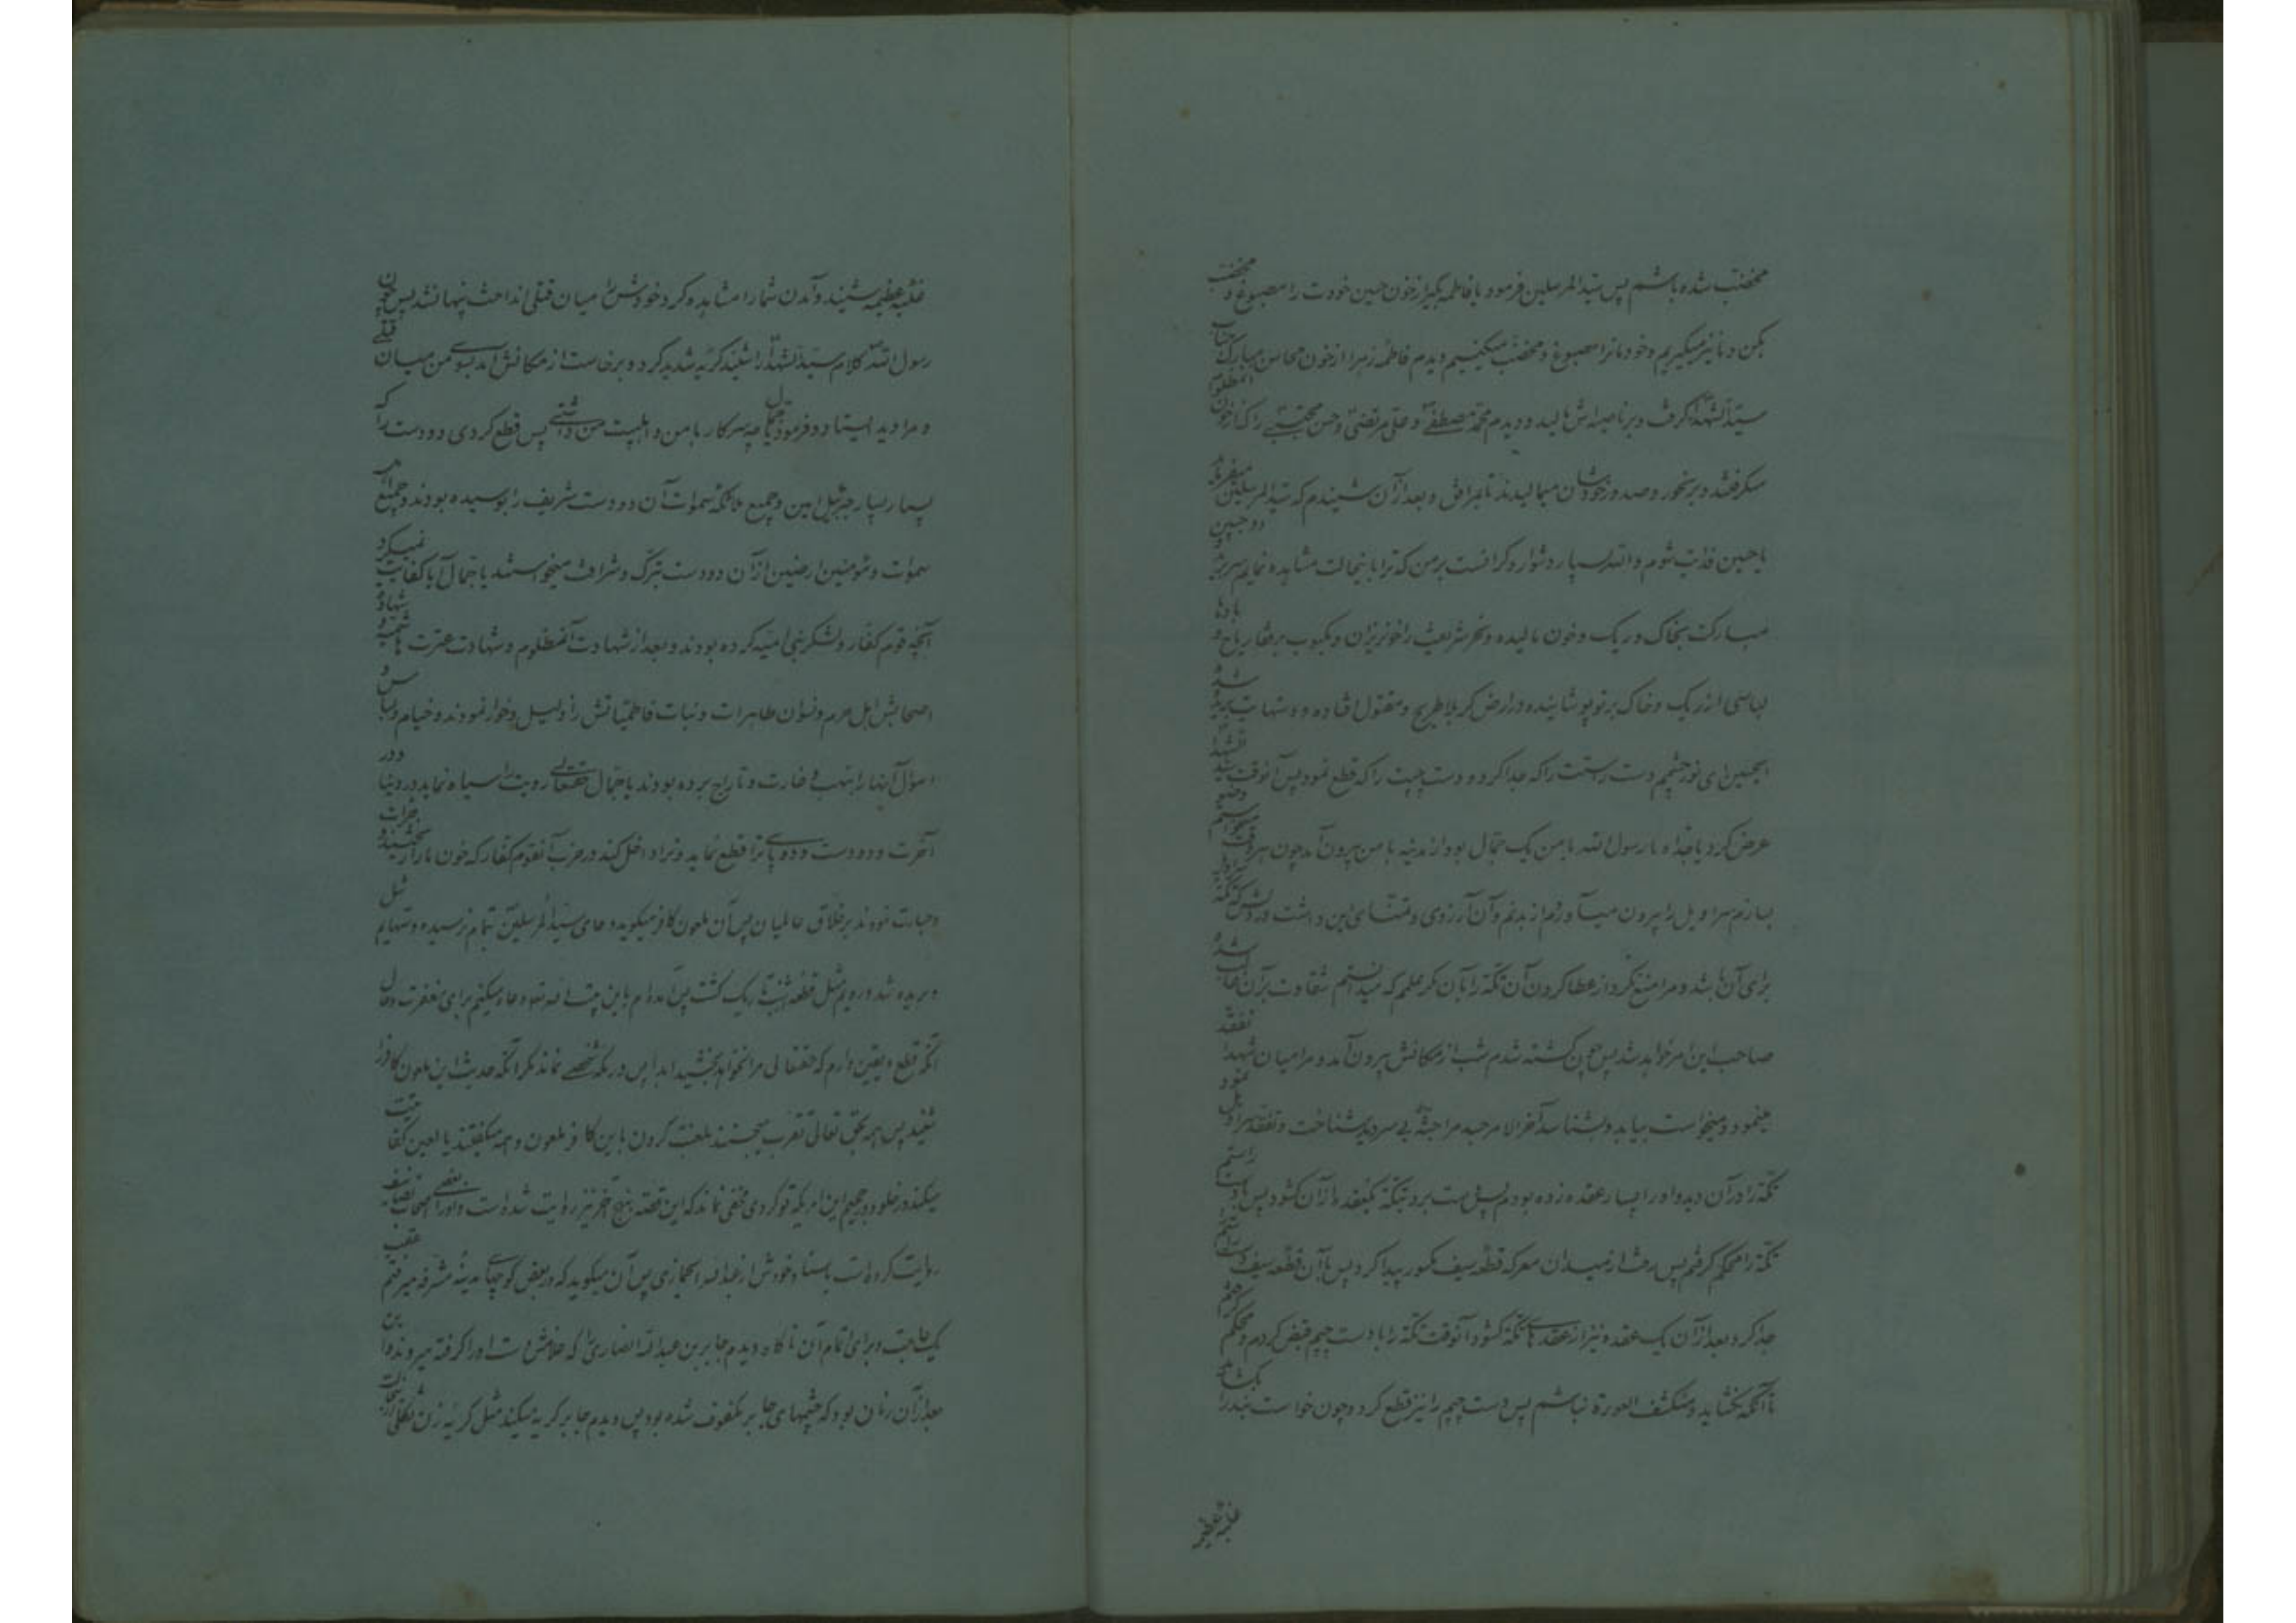 مخضب شده باشم پس سید المرسلین فرمود یا فاطمه بگیر از خون حسین خودت را مصبوغ و مخضب
بکن و ما نیز میگیریم و خودمانرا مصبوغ و مخضب میکنیم دیدم فاطمه زهرا از خون محاسن مبارک جناب
سید الشهدا گرفت و بر ناصیه اش مالید و دیدم محمد مصطفی و علی مرتضی و حسن مجتبی را که از خون المظلوم
میگرفتند و بر نحور و صدور خودشان میمالیدند تا بمرافق و بعد از آن شنیدم که سید المرسلین میفرماید
یا حسین فدایت شوم والله بسیار دشوار و گرانست بر من که ترا باینحالت مشاهده نمایم سر بریده دو جبین
مبارکت بخاک و ریک و خون مالیده و نحر شریفت را خونریزان و مکبوب بر قفا ریاح و بادها
لباسی از ریک و خاک بر تو پوشانیده در ارض کربلا طریح و مقتول افتاده و دستهایت بریده شد
ایحسین ای نور چشمم دست راستت را که جدا کرد و دست چپت را که قطع نمود پس آنوقت سید الشهدا
عرض کرد یا جداه یا رسول الله با من یک جمال بود از مدینه با من بیرون آمد چون هر وقت
بسازم سراویل را بیرون میآوردم از بدنم و آن آرزوی و تمنای این داشت
برای آن باشد و مرا منع نکرد از عطا کردن آن تکه را بآن مگر علمم که میدانستم شقاوت بر آن غالب شد و
صاحب این امر خواهد شد پس چون کشته شدم شب از مکانش بیرون آمد و مرا میان شهدا تفقد
مینمود و میخواست بیابد و بشناسد آخر الامر جسد مرا جثه بی سر دید شناخت و تفقد سراویل نمود
تکه را در آن دید و او را بسیار عقده زده بودم پس دست برد بتکه یکعقده از آن گشود پس با دست راستم
تکه را محکم گرفتم پس رفت از میدان معرکه قطعه سیف مکسور پیدا کرد پس با آن قطعه سیف دست راستم
جدا کرد بعد از آن یک عقده نیز از عقدهای تکه گشود آنوقت تکه را با دست چپم قبض کردم و محکم گرفتم
تا آنکه نگشاید و منکشف العورة نباشم پس دست چپم را نیز قطع کرد و چون خواست بند را بگشاید
غلبه عظیمه
غلبه عظیمه شنید و آمدن شما را مشاهده کرد خودش را میان قتلی انداخت پنها نشد پس چون
رسول الله کلام سید الشهدا را شنید گریه شدید کرد و برخاست از مکانش آمد بسوی من میان قتلی
و مرا دید ایستاد و فرمود یا جمال چه سر کار با من و اهلبیت من داشتی پس قطع کردی دو دست را که
بسیار بسیار جبرئیل امین و جمیع ملائکه سموات آن دو دست شریف را بوسیده بودند و جمیع اهل
سموات و مؤمنین ارضین از آن دو دست تبرک و شرافت میخواستند یا جمال آیا کفایت نمیکرد
آنچه قوم کفار و لشکر بنی امیه کرده بودند و بعد از شهادت آنمظلوم و شهادت عترت
اصحابش اهل حرم و نسوان طاهرات و بنات فاطمیاتش را ذلیل و خوار نمودند و خیام و لباس و
اموال آنها را بنهب و غارت و تاراج برده بودند یا جمال حقتعالی رویت را سیاه نماید در دنیا و در
آخرت و دو دست و دو پای ترا قطع نماید و ترا داخل کند در حزب آنقوم کفار که خون ما را ریختند و جرات
و جسارت نمودند بر خلاق عالمیان پس آن ملعون کافر میگوید دعای سید المرسلین تمام نرسیده دستهایم شل
و بریده شد و رویم مثل قطعه شب تاریک گشت پس آمده ام باین بیت الله تعالی دعا میکنم برای مغفرت و حال
آنکه قطع و یقین دارم که حقتعالی مرا نخواهد بخشید ابدا پس در مکه شخصی نماند مگر آنکه حدیث این ملعون کافر را
شنید پس همه بحق تعالی تقرب میجستند بلعنت کردن باین کافر ملعون و همه میگفتند یا لعین کفایت
میکند در خلود در جحیم این امریکه تو کردی مخفی نماند که این قصه بنهج آخر نیز روایت شده است و او را بعضی اصحاب تصانیف
روایت کرده است باسناد خودش از عبدالله الحجازی پس آن میگوید که در بعض کوچهای مدینه مشرفه میرفتم عقب
یک حاجت و برای اتمام آن ناگاه دیدم جابر بن عبدالله انصاری را که غلامش دست او را گرفته میرفتند و این
بعد از آن زمان بود که چشمهای جابر مکفوف شده بود پس دیدم جابر گریه میکند مثل گریه زن ثکلی